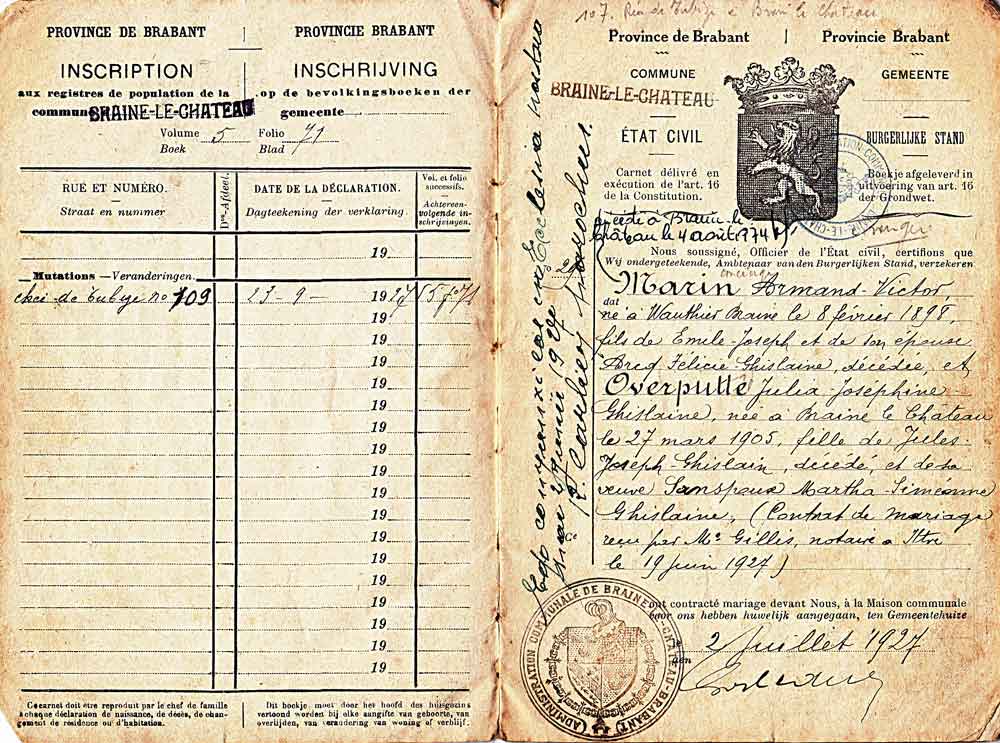 PROVINCE DE BRABANT | PROVINCIE BRABANT
INSCRIPTION
aux registres de population de la
commune BRAINE-LE-CHATEAU
INSCHRIJVING
op de bevolkingsboeken der
gemeente
Volume 5 Folio 71
Boek Blad
RUE ET NUMÉRO.
Straat en nummer
Dre-Afdeel.
DATE DE LA DÉCLARATION.
Dagteekening der verklaring.
Vol. et folio
successifs.
Achtereen-
volgende in-
schrijvingen.
19
Mutations — Veranderingen.
de Tubize no 109 23 - 9 - 1927 5 fo 71
19
19
19
19
19
19
19
19
19
19
19
19
19
19
19
19
19
Ce carnet doit être reproduit par le chef de famille
à chaque déclaration de naissance, de décès, de chan-
gement de résidence ou d'habitation.
Dit boekje moet door het hoofd des huisgezins
vertoond worden bij elke aangifte van geboorte, van
overlijden, van verandering van woning of verblijf.
107. Rue de Tubize à Braine le Château
Province de Brabant | Provincie Brabant
COMMUNE
BRAINE-LE-CHATEAU
GEMEENTE
ÉTAT CIVIL
BURGERLIJKE STAND
Carnet délivré en
exécution de l'art. 16
de la Constitution.
Boekje afgeleverd in
uitvoering van art. 16
der Grondwet.
décédé à Braine-le
Château le 4 août 1974
Nous soussigné, Officier de l'État civil, certifions que
Wij ondergeteekende, Ambtenaar van den Burgerlijken Stand, verzekeren
dat
Marin Armand-Victor,
né à Wauthier Braine le 8 février 1898,
fils de Emile-Joseph et de son épouse
Félicie Ghislaine, décédée, et
Overputte Julia-Joséphine
Ghislaine, née à Braine le Chateau
le 27 mars 1905, fille de Jules
Joseph-Ghislain, décédé, et de sa
veuve Martha-Siméonne
Ghislaine, (Contrat de mariage
reçu par Me Gilles, notaire à Ittre
le 19 juin 1927)
ont contracté mariage devant Nous, à la Maison communale
voor ons hebben huwelijk aangegaan, ten Gemeentehuize
le
den
2 Juillet 1927
ADMINISTRATION COMMUNALE DE BRAINE-LE-CHATEAU (BRABANT)
Ego conjunxi eos in Ecclesia
parochus.